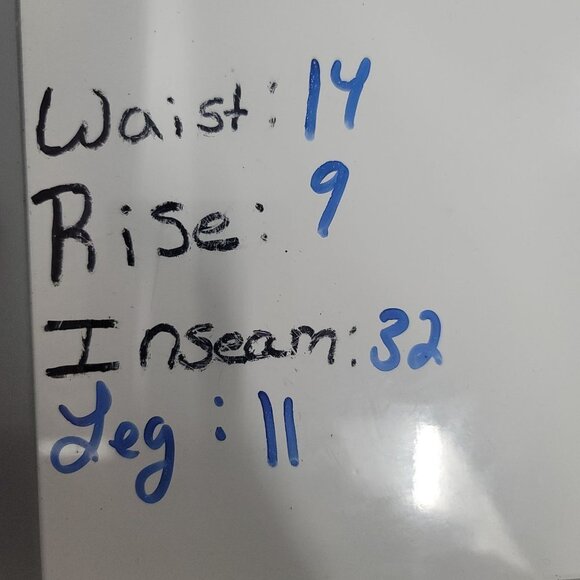 Waist: 14
Rise: 9
Inseam: 32
Leg: 11